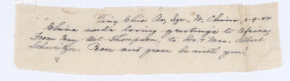 Ting Chia Po, Sze, W. China, 2-9-44
China sends loving greetings to Africa
From May Thompson, to Dr. & Mrs. Albert
Schweitzer. Peace and grace be with you!